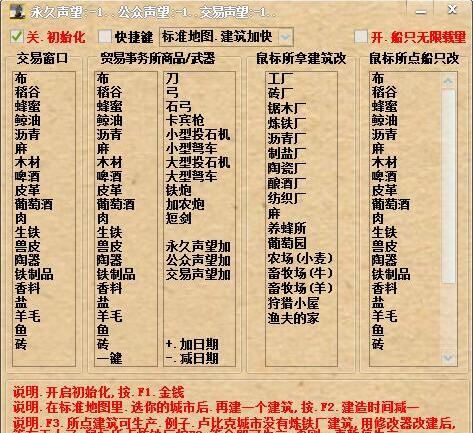 永久声望:=1.. 公众声望:=1.. 交易声望:=1..
关. 初始化 快捷键 标准地图. 建筑加快 开. 船只无限载量
交易窗口 贸易事务所商品/武器 鼠标所拿建筑改 鼠标所点船只改
布 布 刀 工厂 布
稻谷 稻谷 弓 砖厂 稻谷
蜂蜜 蜂蜜 石弓 锯木厂 蜂蜜
鲸油 鲸油 卡宾枪 炼铁厂 鲸油
沥青 沥青 小型投石机 沥青厂 沥青
麻 麻 小型弩车 制盐厂 麻
木材 木材 大型投石机 陶瓷厂 木材
啤酒 啤酒 大型弩车 酿酒厂 啤酒
皮革 皮革 铁炮 纺织厂 皮革
葡萄酒 葡萄酒 加农炮 麻 葡萄酒
肉 肉 短剑 养蜂所 肉
生铁 生铁 葡萄园 生铁
兽皮 兽皮 永久声望加 农场(小麦) 兽皮
陶器 陶器 公众声望加 畜牧场(牛) 陶器
铁制品 铁制品 交易声望加 畜牧场(羊) 铁制品
香料 香料 狩猎小屋 香料
盐 盐 渔夫的家 盐
羊毛 羊毛 羊毛
鱼 鱼 鱼
砖 砖 +. 加日期 砖
一键 -. 减日期
说明. 开启初始化, 按. F1. 金钱
说明. 在标准地图里. 选你的城市后. 再建一个建筑, 按. F2. 建造时间减一
说明. F3. 所点建筑可生产. 例子. 卢比克城市没有炼铁厂建筑, 用修改器改建后,